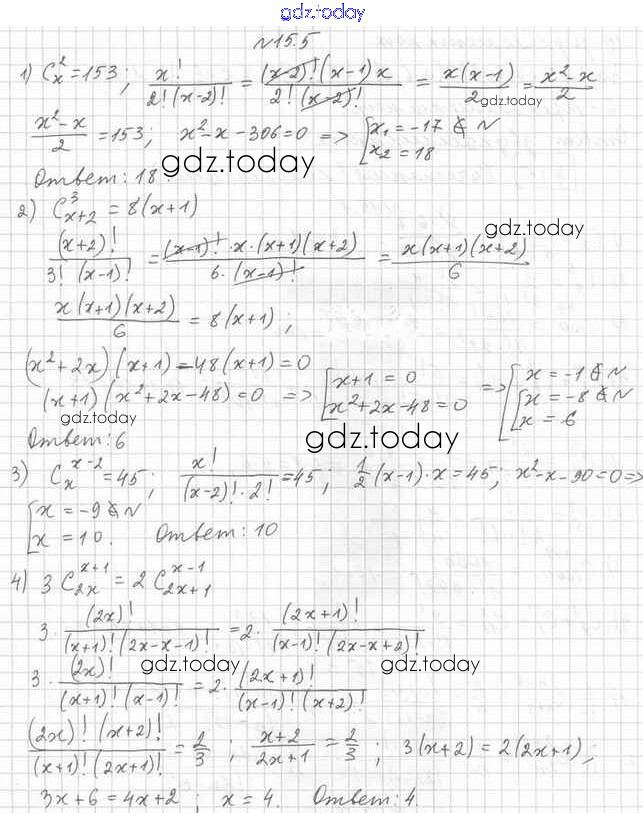 gdz.today
№15.5
1) C_x^2 = 153; x!/(2!(x-2)!) = ((x-2)!(x-1)x)/(2!(x-2)!) = x(x-1)/2 = (x²-x)/2
gdz.today
(x²-x)/2 = 153; x²-x-306=0 => [x₁ = -17 ∉ N
x₂ = 18
gdz.today
Ответ: 18.
2) C_{x+2}^3 = 8(x+1)
gdz.today
(x+2)!/(3!(x-1)!) = ((x-1)!·x·(x+1)(x+2))/(6·(x-1)!) = x(x+1)(x+2)/6
x(x+1)(x+2)/6 = 8(x+1);
(x²+2x)(x+1)-48(x+1)=0
(x+1)(x²+2x-48)=0 => [x+1=0
x²+2x-48=0 => [x = -1 ∉ N
[x = -8 ∉ N
x = 6
gdz.today
gdz.today
Ответ: 6
3) C_x^{x-2} = 45; x!/((x-2)!·2!) = 45; 1/2(x-1)·x = 45; x²-x-90=0 =>
[x = -9 ∉ N
x = 10. Ответ: 10
4) 3C_{2x}^{x+1} = 2C_{2x+1}^{x-1}
3·(2x)!/((x+1)!(2x-x-1)!) = 2·(2x+1)!/((x-1)!(2x-x+2)!)
gdz.today
gdz.today
3·(2x)!/((x+1)!(x-1)!) = 2·(2x+1)!/((x-1)!(x+2)!)
(2x)!(x+2)!/((x+1)!(2x+1)!) = 2/3; (x+2)/(2x+1) = 2/3; 3(x+2) = 2(2x+1);
3x+6 = 4x+2; x = 4. Ответ: 4.